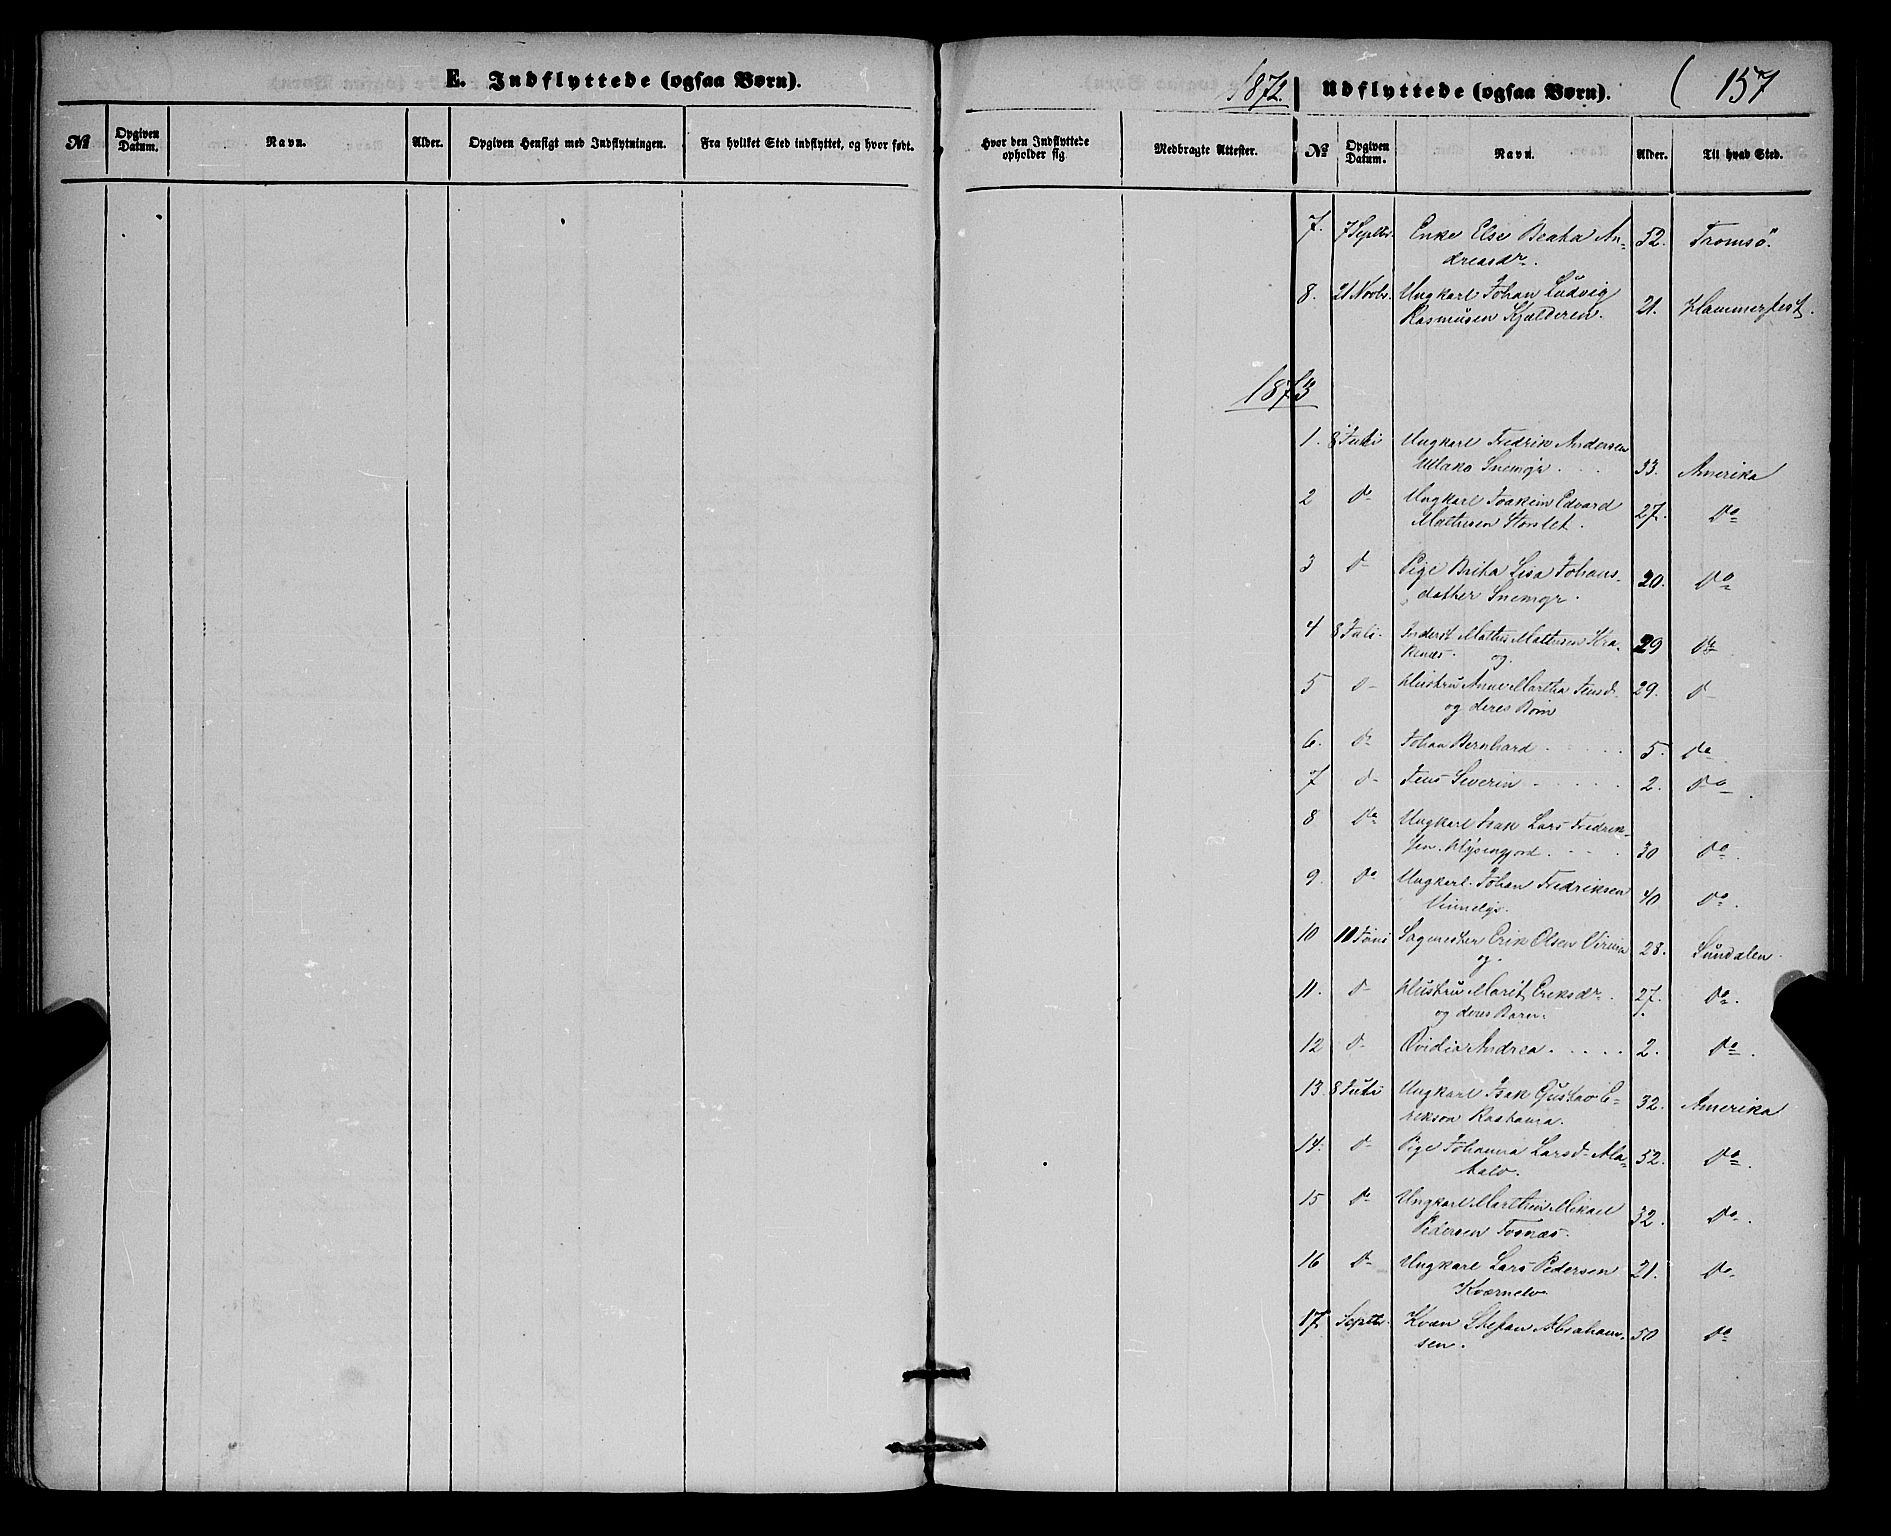 E. Indflyttede (ogsaa Børn).
№ Opgiven Datum. Navn. Alder. Opgiven Hensigt med Indflytningen. Fra hvilket Sted indflyttet, og hvor født.
Hvor den Indflyttede opholder sig. Medbragte Attester.
1872. Udflyttede (ogsaa Børn). ( 157
№ Opgiven Datum. Navn. Alder. Til hvad Sted.
7. 7 Septbr. Enke Else Beata An-
dreasdr. 52. Tromsö.
8. 21 Novbr. Ungkarl Johan Ludvig
Rasmusen Kjelderen. 21. Hammerfest.
1873
1. 8 Juli Ungkarl Fredrik Andersen
Snemyr. 33. Amerika
2 Do Ungkarl Joakim Edvard
Mathisen Storslet. 27. Do
3 D Pige Brita Lisa Johans-
datter Snemyr. 20. Do
4 8 Juli. Inderst Mathis Mathisen Kra-
kenæs. og 29 Do
5 D Hustru Anne Martha Jensd.
og deres Børn 29. D
6. Do Johan Bernhard 5. Do
7 D Jens Severin 2. Do
8 Do Ungkarl Isak Lars Fredrik-
sen. 30 Do.
9. Do Ungkarl Johan Fredriksen
40 Do.
10 11 Juni Sagmester Erik Olsen
og. 28. Sundalen.
11. D Hustru Marit Eriksdr.
og deres Barn. 27. Do.
12 D Ovidia Andrea 2. Do.
13. 8 Juli Ungkarl Isak Gustav E-
rikson 32. Amerika
14. D Pige Johanna Larsd.
52. Do.
15 Do Ungkarl Marthin Mikael
Pedersen 32. Do.
16 D Ungkarl Lars Pedersen
Kværnelv 21. Do.
17. Septbr. Kvæn Stefan Abraham-
sen. 50 Do